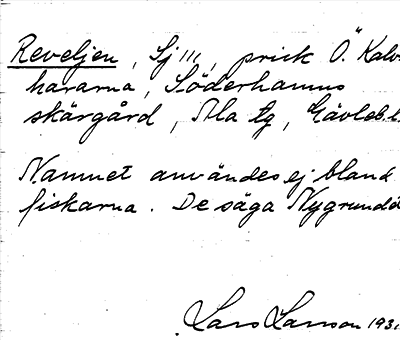 Reveljen, Sj III, prick Ö. Kalv
hararna, Söderhamns
skärgård, Ala tg, Gävleb.l.
Namnet användes ej bland
fiskarna. De säga Nygrund
Lars Larsson 193